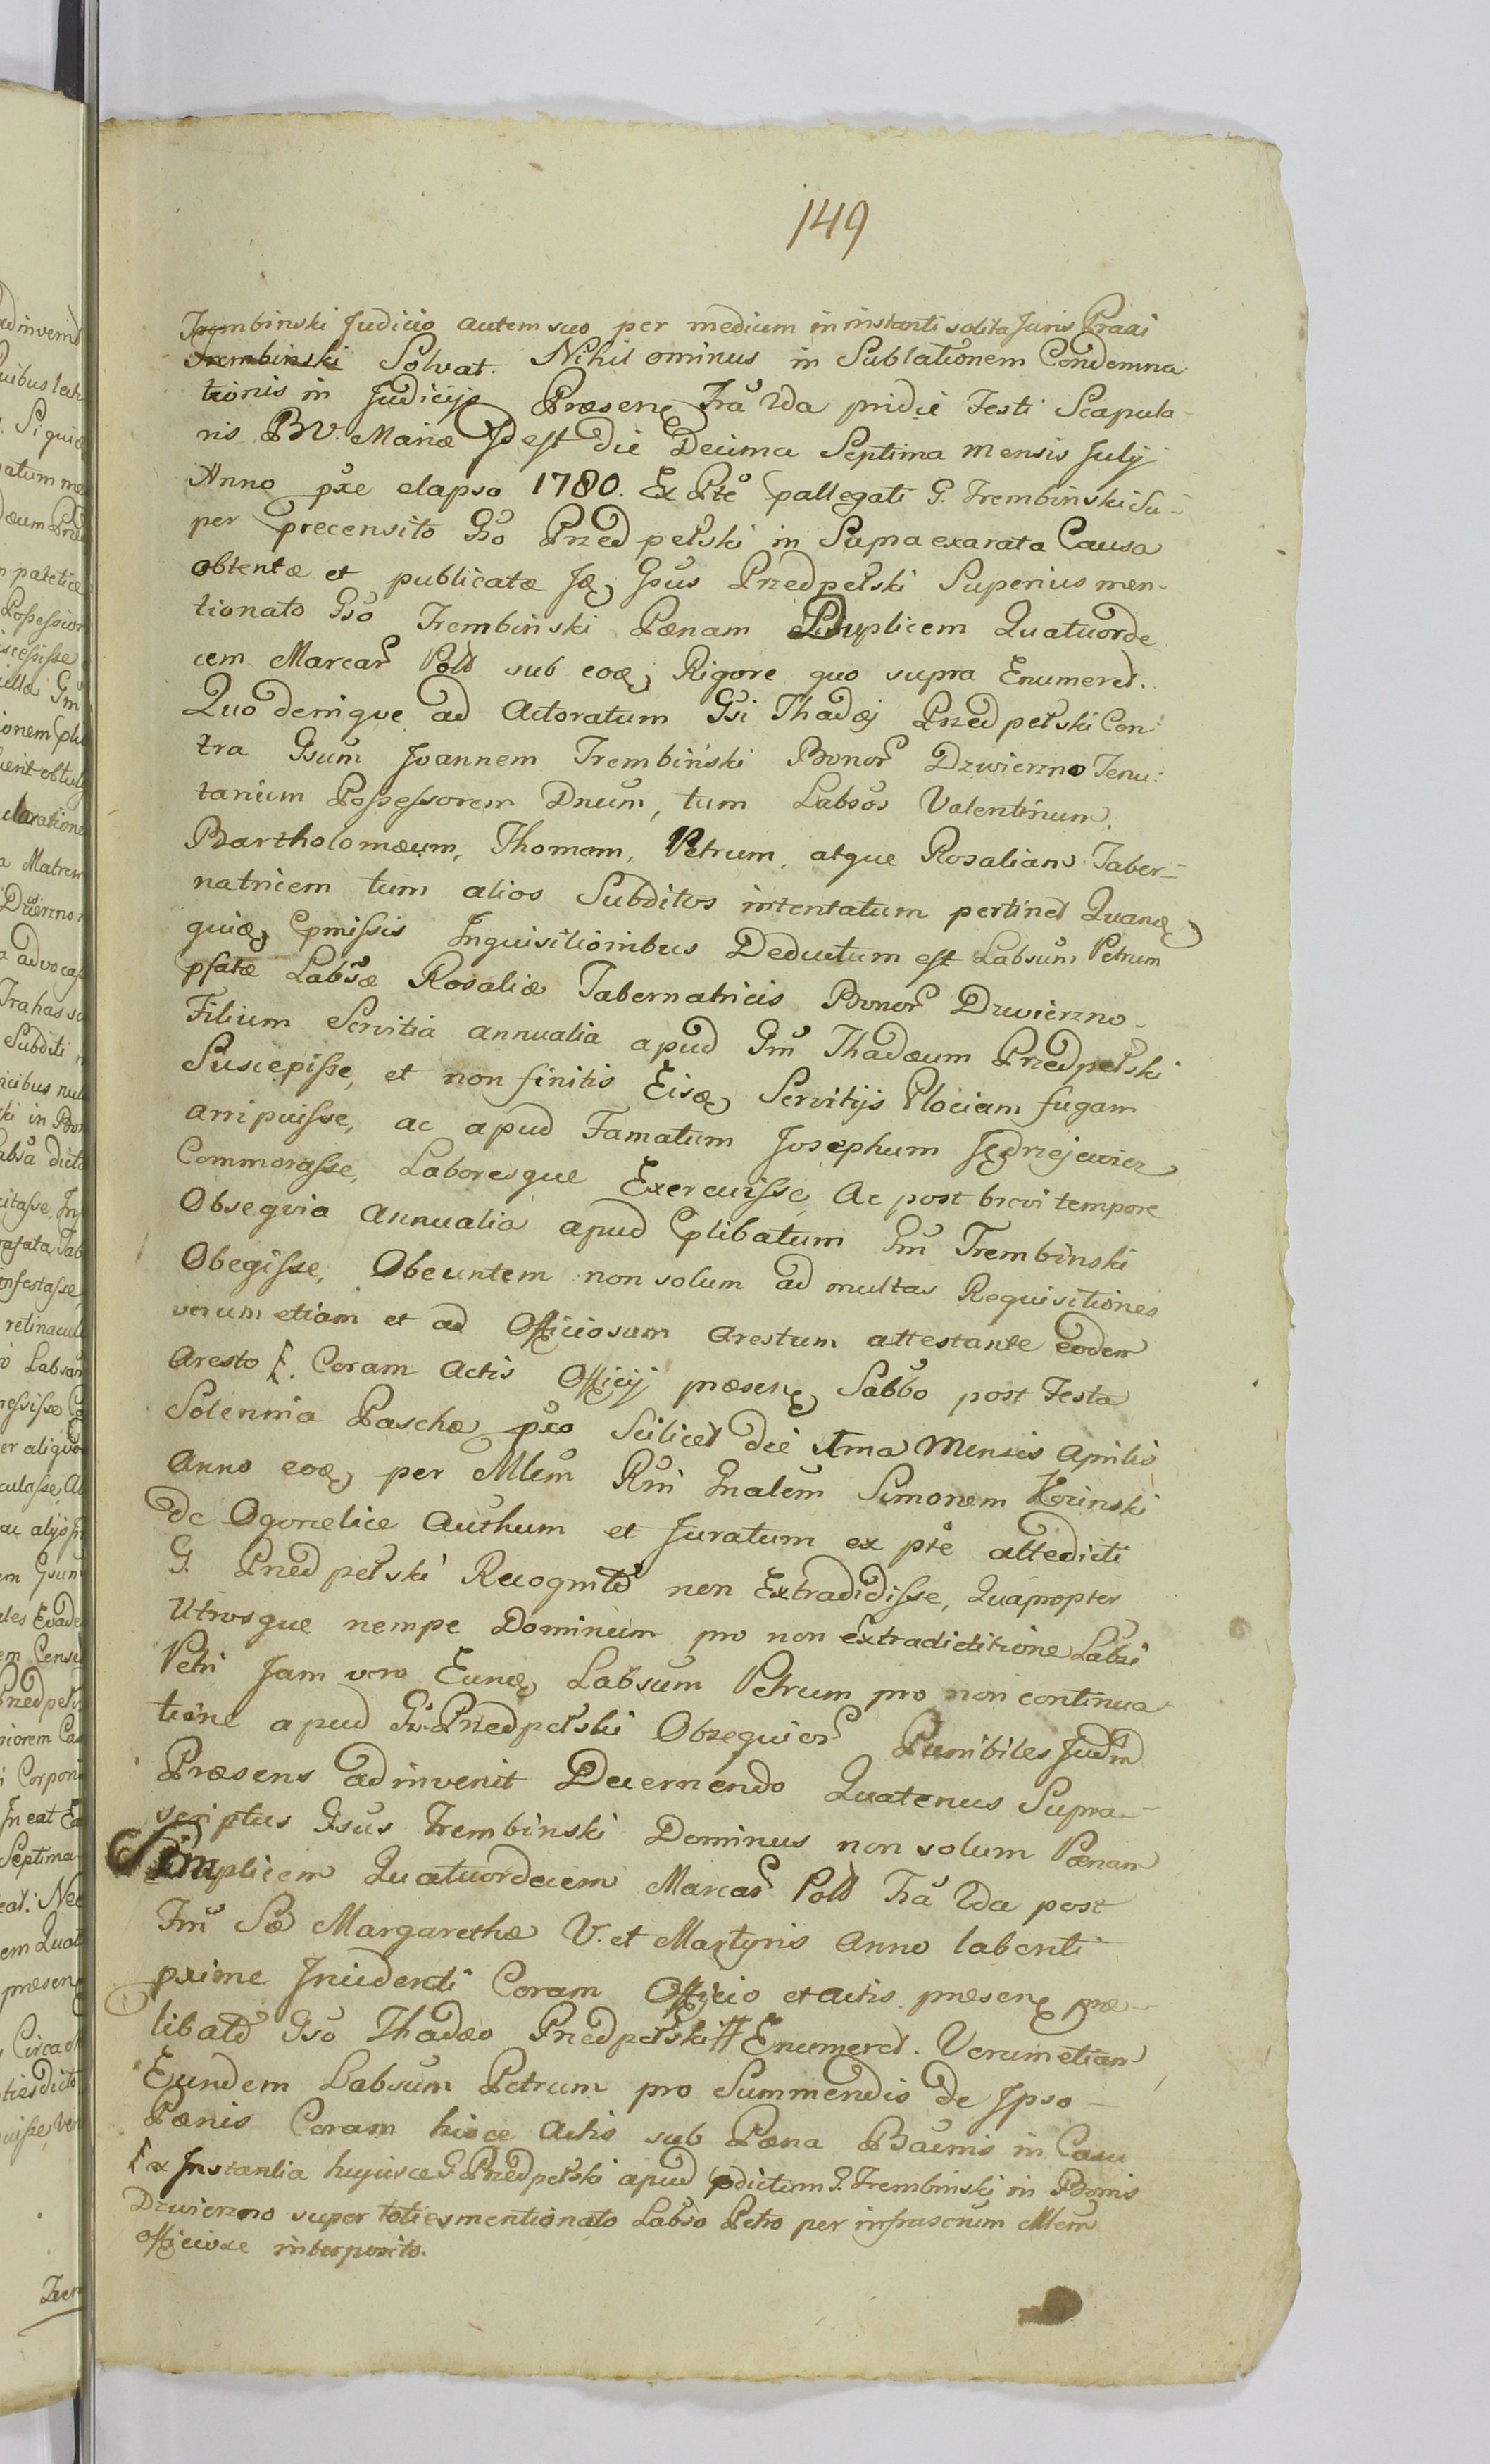 149
Trembinski Judicio autem suo per medium in instanti solita Juris Praxi
Trembinski Solvat. Nihil ominus in Sublationem Condemna
tionis in Judicijs Præsen Fra 2da pridie Festi Scapula-
ris BV. Mariæ Id est die Decima Septima mensis July
Anno pxe elapso 1780. Ex Pte pallegati G. Trembinski Su-
per precensito Gso Przedpełski in Supra exarata Causa
obtentæ et publicatæ Gsus Przedpełski Superius men-
tionato Gso Trembinski Pænam Duplicem Quatuorde
cem Marcar Poll sub eoæ Rigore quo supra Enumeret.
Quo denique ad Actoratum Gsi Thadæj Przedpełski Con:
tra Gsum Joannem Trembiński Bonor Dzwierzno Tenu:
tarium Possessorem Dnum, tum Labsos Valentinum,
Bartholomæum, Thomam, Petrum, atque Rosaliam Taber-
natricem tum alios Subditos intentatum pertinet Quanæ
quiæ Epmissis Inquisitionibus Deductum est Labsum Petrum
pfatæ Labsæ Rosaliæ Tabernatricis Bonor Dzwierzno-
Filium Servitia annualia apud Gm Thadæum Przedpełski
Suscepisse, et non finitis Eisæ Servitijs Plociam fugam
arripuisse, ac apud Famatum Josephum Jędrzejewicz
Commorasse, Laboresque Exercuisse, Ac post brevi tempore
Obsequia annualia apud plibatum Gm Trembinski
Obegisse, Obeuntem non solum ad multas Requisitiones
verum etiam et ad Officiosum arestum attestante eodem
aresto Coram actis Officij præsen Sabbo post Festa
Solennia Paschæ pxo Scilicet die Mensis Aprilis
Anno eoæ per Mlem Rm Gnalem Simonem
de Ogorzelice Authum et Juratum ex pte attedicti
G. Przedpełski Recognito non Extradidisse, Quapropter
Utrosque nempe Dominum pro non extradiditione Labsi
Petri Jam vero Eunæ Labsum Petrum pro non continua-
tione apud Gs. Przedpełski Obsequior Punibiles Judm
Præsens adinvenit Decernendo Quatenus Supra-
scriptus Gsus Trembinski Dominus non solum Pænam
Duplicem Quatuordecem Marcar Poll Fra 2da post
Fm Sæ Margarethæ V. et Martyris Anno labenti
pxime Incidenti Coram Officio et actis præsen præ-
libato Gso Thadæo Przedpełski Enumeret. Verum etiam
Eundem Labsum Petrum pro Summendis de Ipso-
Pænis Coram hisce Actis sub Pæna Bannis in Casu
ex Instantia hujusce G. Przedpełski apud pdictum G. Trembinski in Bonis
Dzwierzno super toties mentionato Labso Petro per infrascrium Mlem
officiose interposito.